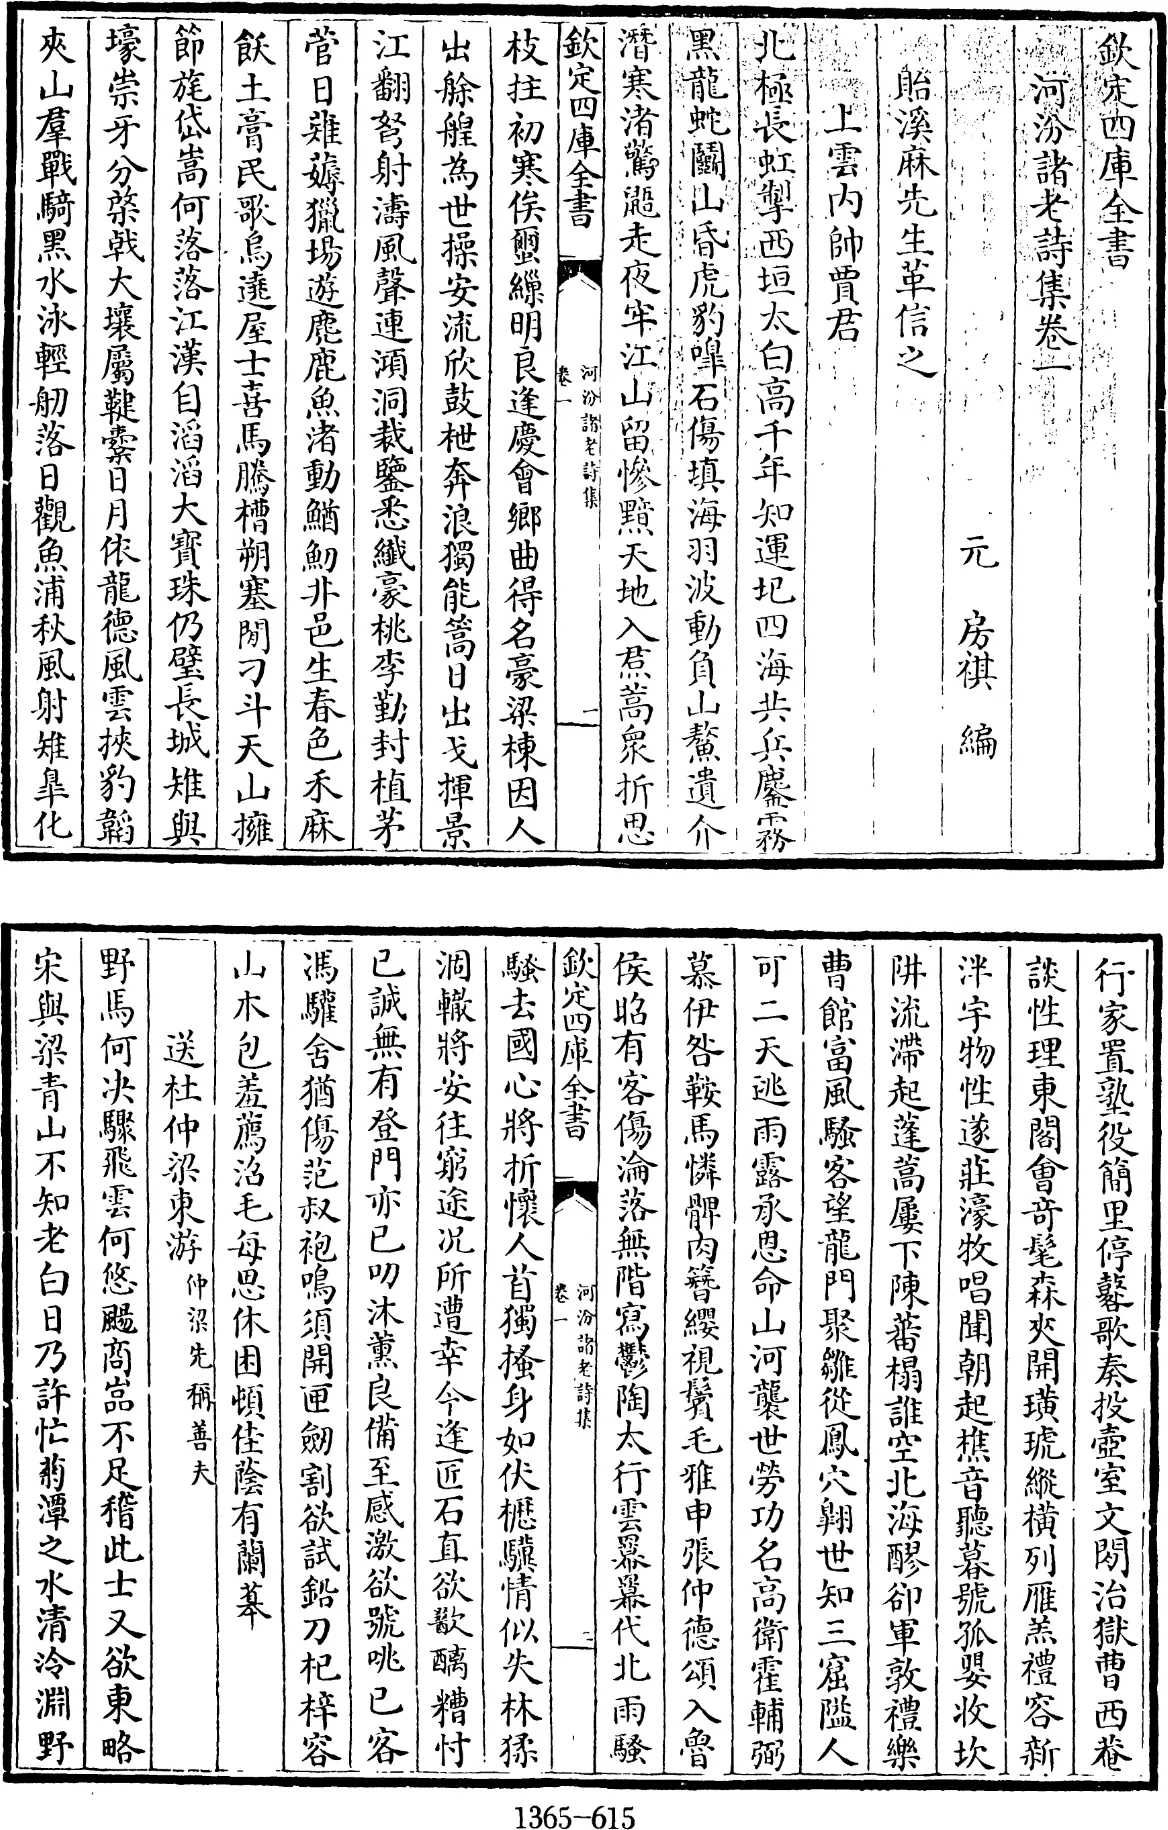 欽定四庫全書
河汾諸老詩集卷一
元　房祺　編
貽溪麻先生革信之
上雲內帥賈君
北極長虹掣西垣太白高千年知運圮四海共兵鏖霧
黑龍蛇鬭山昏虎豹嘷石傷填海羽波動負山鰲遺介
潛寒渚驚鼯走夜牢江山留慘黯天地入焄蒿衆折思
欽定四庫全書
河汾諸老詩集
卷一
一
枝拄初寒俟璽繅明良逢慶會鄉曲得名豪梁棟因人
出艅艎為世操安流欣鼓枻奔浪獨能篙日出戈揮景
江翻弩射濤風聲連澒洞裁鑒悉纖豪桃李勤封植茅
菅日薙薅獵場遊麀鹿魚渚動鰌魛非邑生春色禾麻
飫土膏民歌烏遶屋士喜馬騰槽朔塞閒刁斗天山擁
節旄岱嵩何落落江漢自滔滔大寶珠仍璧長城雉與
壕崇牙分棨戟大壤屬鞬櫜日月依龍德風雲挾豹韜
夾山羣戰騎黑水泳輕舠落日觀魚浦秋風射雉臯化
行家置塾役簡里停鼛歌奏投壺室文閱治獄曹西菴
談性理東閣會竒髦森夾開璜琥縱横列雁羔禮容新
泮宇物性遂莊濠牧唱聞朝起樵音聽暮號孤嬰收坎
阱流滯起蓬蒿屢下陳蕃榻誰空北海醪卻軍敦禮樂
曹館富風騷客望龍門聚雛從鳳穴翱世知三窟隘人
可二天逃雨露承恩命山河襲世勞功名高衛霍輔弼
慕伊咎鞍馬憐髀肉簪纓視鬢毛雅申張仲德頌入魯
侯昭有客傷淪落無階寫鬱陶太行雲羃羃代北雨騷
欽定四庫全書
河汾諸老詩集
卷一
二
騷去國心將折懷人首獨搔身如伏櫪驥情似失林猱
涸轍將安往窮途况所遭幸今逢匠石直欲歠醨糟忖
己誠無有登門亦已叨沐薰良備至感激欲號咷已客
馮驩舍猶傷范叔袍鳴須開匣劒割欲試鉛刀杞梓容
山木包羞薦沼毛毎思休困頓佳蔭有蘭皋
送杜仲梁東游仲梁先稱善夫
野馬何决驟飛雲何悠颺商嵓不足稽此士又欲東略
宋與梁青山不知老白日乃許忙菊潭之水清泠淵野
1365-615